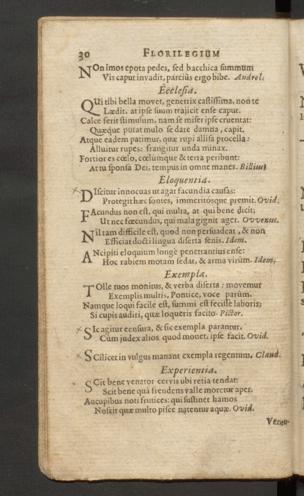 30 FLORILEGIUM
NOn imos epota pedes, sed bacchica summum
Vis caput invadit, parcius ergo bibe. Androl.
Ecclesia.
QUi tibi bella movet, genetrix castissima, non te
Lædit. at ipse suum trajicit ense caput.
Calce ferit stimulum, nam se miser ipse cruentat:
Quæque putat mulo se dare damna, capit.
Atque eadem patimur, quæ rupi allisa procella:
Alluitur rupes: frangitur unda minax.
Fortior es cœlo, cœlumque & terra peribunt:
At tu sponsa Dei, tempus in omne manes. Billius
Eloquentia.
DIscitur innocuas ut agat facundia causas:
Protegit hæc sontes, immeritosque premit. Ovid.
FAcundus non est, qui multa, at qui bene dicit;
Ut nec fœcundus, qui mala gignit ager. Owenus.
NIl tam difficile est, quod non persuadeat, & non
Efficiat docti lingua diserta senis. Idem.
ANcipiti eloquium longe penetrantius ense:
Hoc rabiem motam sedat, & arma virûm. Idem.
Exempla.
TOlle tuos monius, & verba diserta: movemur
Exemplis multis, Pontice, voce parùm.
Namque loqui facile est, summi est fecisse laboris;
Si cupis audiri, quæ loqueris facito. Pictor.
SIc agitur censura, & sic exempla parantur,
Cum judex alios quod monet, ipse facit. Ovid.
SCilicet in vulgus manant exempla regentum. Claud.
Experientia.
SCit bene venator cervis ubi retia tendat:
Scit bene quâ frendens valle moretur aper.
Aucupibus noti frutices: qui sustinet hamos
Noscit quæ multo pisce natentur aquæ. Ovid.